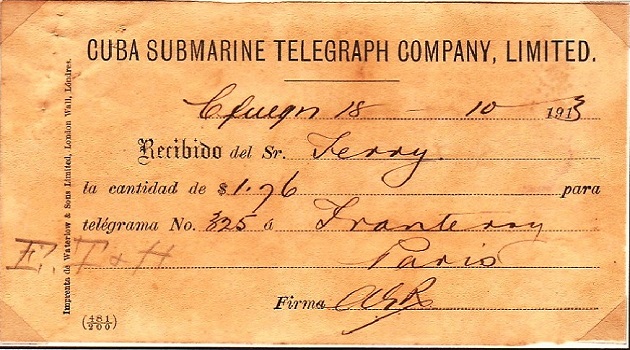 CUBA SUBMARINE TELEGRAPH COMPANY, LIMITED.
Cfuegos 18 - 10 1913
Recibido del Sr. Terry.
la cantidad de $ 1.76 para
telégrama No. 325 á Franterry
Paris
E. T & H
Firma
Imprenta de Waterlow & Sons Limited, London Wall, Londres.
(481/200)